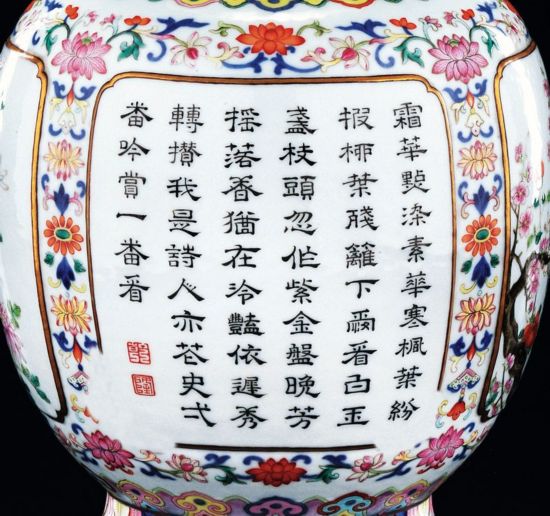 霜華點染素華寒楓葉紛
披柳葉殘籬下看白玉
盞枝頭忽作紫金盤晚芳
搖落香猶在冷豔依遲秀
轉攢我是詩人亦花史弌
番吟賞一番看